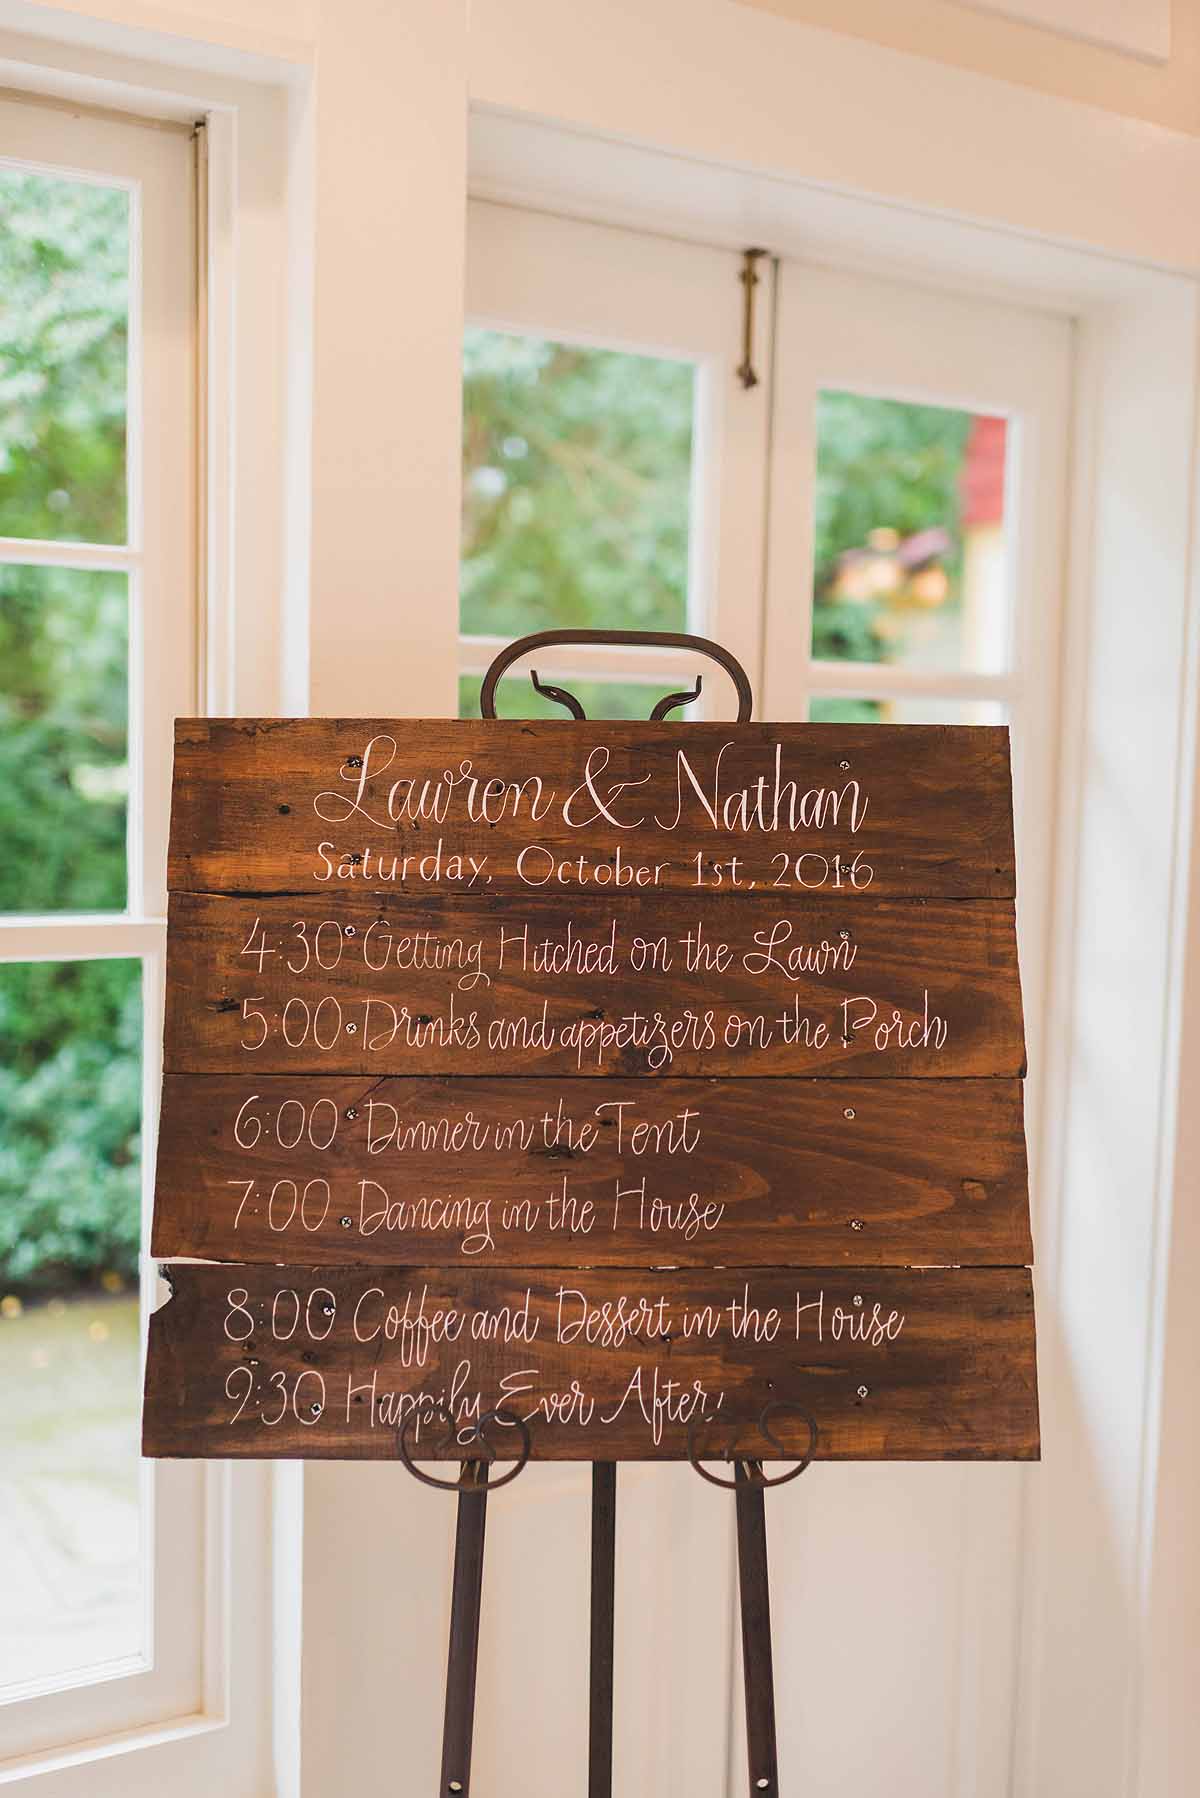 Lauren & Nathan
Saturday, October 1st, 2016
4:30 Getting Hitched on the Lawn
5:00 Drinks and appetizers on the Porch
6:00 Dinner in the Tent
7:00 Dancing in the House
8:00 Coffee and Dessert in the House
9:30 Happily Ever After!